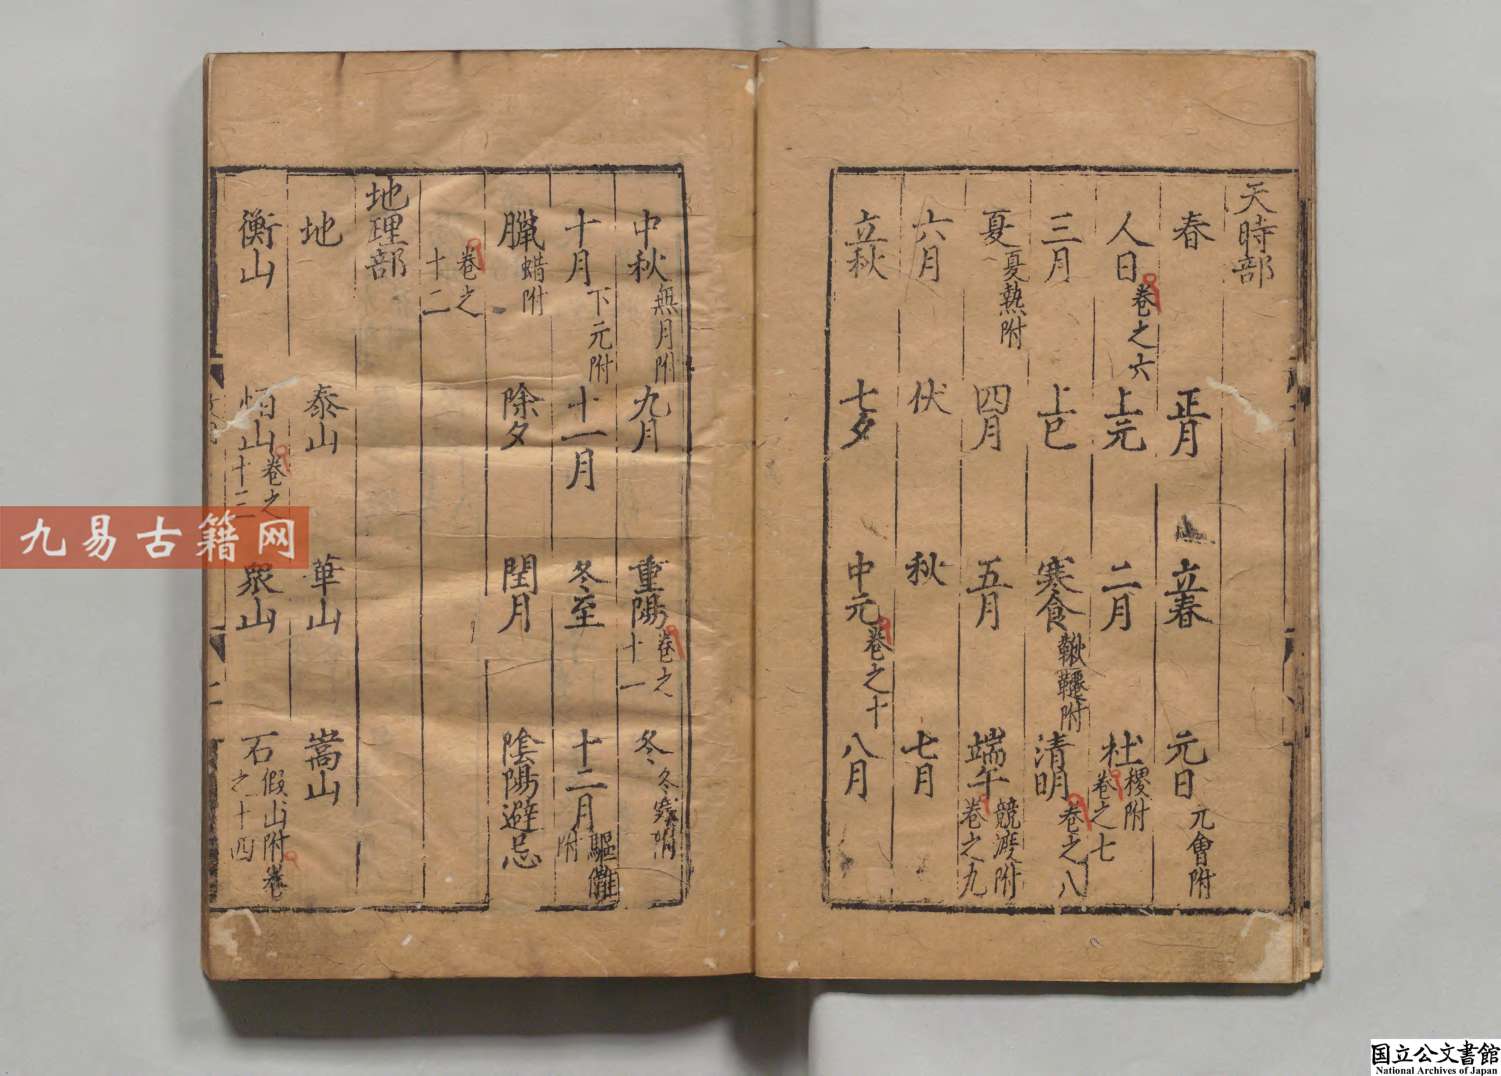 天時部
春 正月 立春 元日 元會附
人日 卷之六 上元 二月 社 稷附 卷之七
三月 上巳 寒食 鞦韆附 清明 卷之八
夏 夏熱附 四月 五月 端午 競渡附 卷之九
六月 伏 秋 七月
立秋 七夕 中元 卷之十 八月
中秋 無月附 九月 重陽 卷之十一 冬 冬寒附
十月 下元附 十一月 冬至 十二月 驅儺附
臘 蜡附 除夕 閏月 陰陽避忌
卷之十二
地理部
地 泰山 華山 嵩山
衡山 恒山 卷之十三 眾山 石 假山附 卷之十四
九易古籍网
国立公文書館
National Archives of Japan